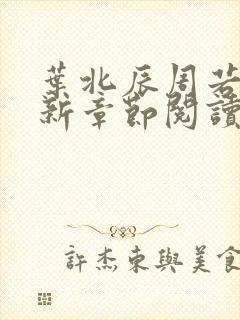 葉北辰周若
新章節閱讀
許杰東與美食